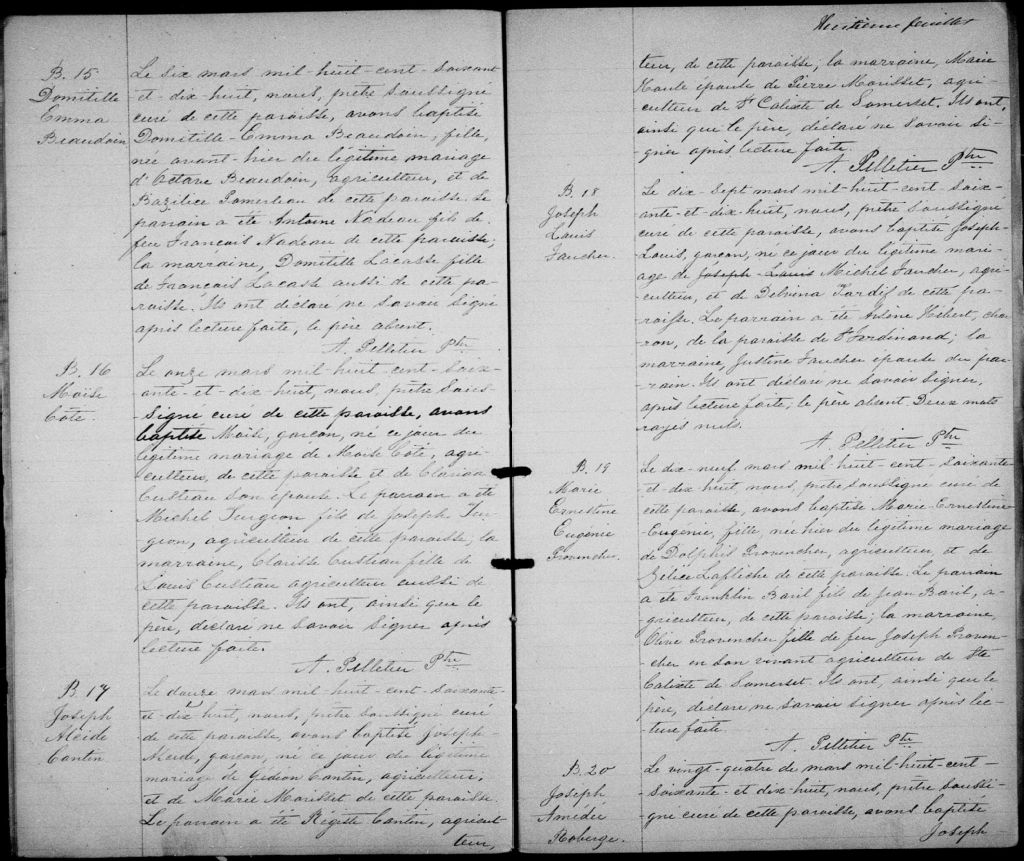 B. 15
Domitille
Emma
Beaudoin
Le six mars mil-huit-cent-soixant
et-dix-huit, nous, prêtre soussigné
curé de cette paroisse, avons baptisé
Domitille-Emma Beaudoin, fille,
née avant-hier du légitime mariage
d'Octave Beaudoin, agriculteur, et de
Bazilice Gamerleau de cette paroisse. Le
parrain a été Antoine Nadeau fils de
feu Francois Nadeau de cette paroisse;
la marraine, Domitille Lacasse fille
de Francois Lacasse aussi de cette pa-
roisse. Ils ont déclaré ne savoir signé
après lecture faite, le père absent.
A. Pelletier Ptre
B. 16
Moïse
Coté.
Le onze mars mil huit-cent-soix-
ante-et-dix-huit, nous, prêtre sous-
signé curé de cette paroisse, avons
baptisé Moïse, garçon, né ce jour du
légitime mariage de Moïse Coté, agri-
culteur, de cette paroisse et de Clarisse
Custeau son épouse. Le parrain a été
Michel Turgeon fils de Joseph Tur-
geon, agriculteur de cette paroisse; la
marraine, Clarisse Custeau fille de
Louis Custeau agriculteur aussi de
cette paroisse. Ils ont, ainsi que le
père, déclaré ne savoir signer après
lecture faite.
A. Pelletier Ptre
B. 17
Joseph
Alcide
Cantin
Le douze mars mil-huit-cent-soixante-
et-dix huit, nous, prêtre soussigné curé
de cette paroisse, avons baptisé Joseph-
Alcide, garçon, né ce jour du légitime
mariage de Gédéon Cantin, agriculteur,
et de Marie Morisset de cette paroisse.
Le parrain a été Régiste Cantin, agricul-
teur,
Huitième feuillet
teur, de cette paroisse; la marraine, Marie
épouse de Pierre Morisset, agri-
culteur de St Calixte de Somerset. Ils ont,
ainsi que le père, déclaré ne savoir si-
gner après lecture faite.
A. Pelletier Ptre
B. 18
Joseph
Louis
Faucher.
Le dix-sept mars mil-huit-cent-soix-
ante-et-dix-huit, nous, prêtre soussigné
curé de cette paroisse, avons baptisé Joseph-
Louis, garçon, né ce jour du légitime mari-
age de Joseph-Louis Michel Faucher, agri-
culteur, et de Delvina Tardif de cette pa-
roisse. Le parrain a été Arsène Hebert, char-
ron, de la paroisse de St Ferdinand; la
marraine, Justine Faucher épouse du par-
rain. Ils ont déclaré ne savoir signer,
après lecture faite; le père absent. Deux mots
rayés nuls.
A. Pelletier Ptre
B. 19
Marie
Ernestine
Eugénie
Provencher.
Le dix-neuf mars mil huit-cent-soixante-
et-dix huit, nous, prêtre soussigné curé de
cette paroisse, avons baptisé Marie-Ernestine-
Eugénie, fille, née hier du légitime mariage
de Dolphis Provencher, agriculteur, et de
Zélice Lafleche de cette paroisse. Le parrain
a été Franklin Baril fils de Jean Baril, a-
griculteur, de cette paroisse; la marraine,
Olive Provencher fille de feu Joseph Proven-
cher en son vivant agriculteur de Ste
Calixte de Somerset. Ils ont, ainsi que le
père, déclaré ne savoir signer après lec-
ture faite.
A. Pelletier Ptre
B. 20
Joseph
Amédée
Roberge.
Le vingt-quatre de mars mil-huit-cent-
soixante-et dix-huit, nous, prêtre soussi-
gné curé de cette paroisse, avons baptisé
Joseph